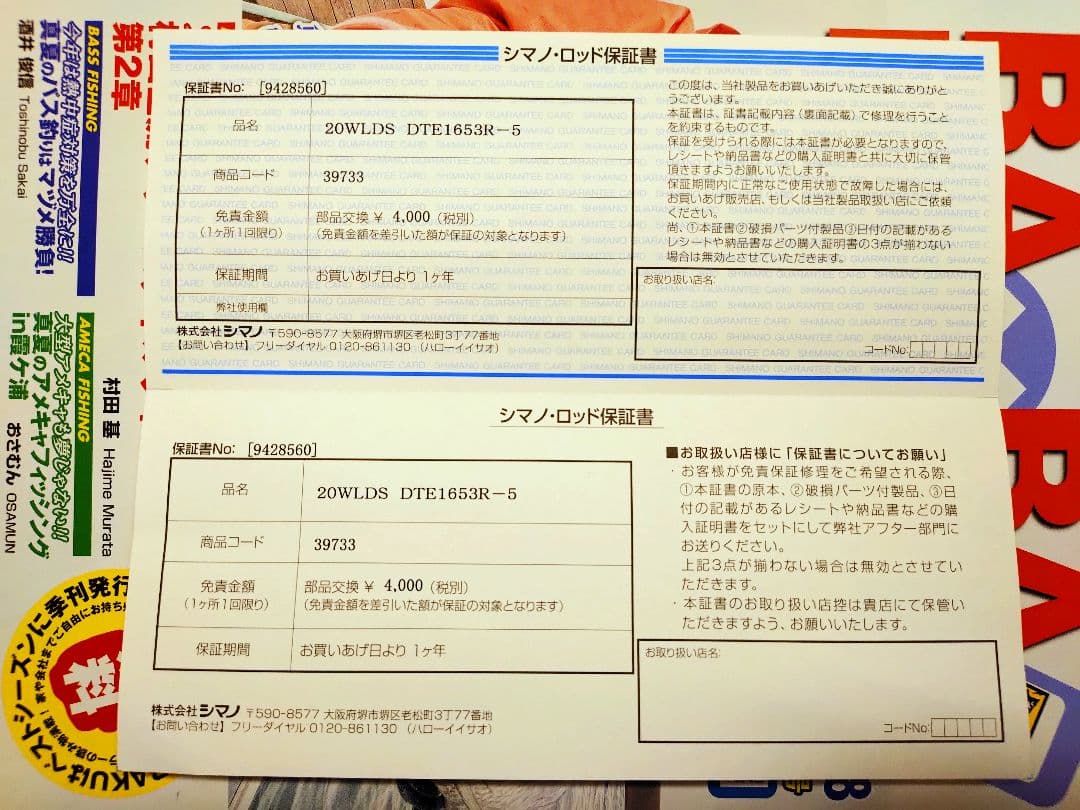 シマノ・ロッド保証書
保証書No: [9428560]
品名 20WLDS DTE1653R-5
商品コード 39733
免責金額 部品交換 ¥ 4,000 (税別)
(1ヶ所1回限り) (免責金額を差引いた額が保証の対象となります)
保証期間 お買いあげ日より 1ヶ年
弊社使用欄
株式会社シマノ 〒590-8577 大阪府堺市堺区老松町3丁77番地
【お問い合わせ】フリーダイヤル 0120-861130 (ハローイイサオ)
この度は、当社製品をお買いあげいただき誠にありがと
うございます。
本証書は、証書記載内容(裏面記載)で修理を行うこと
を約束するものです。
保証を受けられる際には本証書が必要となりますので、
レシートや納品書などの購入証明書と共に大切に保管
頂きますようお願いいたします。
保証期間内に正常なご使用状態で故障した場合には、
お買いあげ販売店、もしくは当社製品取扱い店にご依頼
ください。
尚、①本証書②破損パーツ付製品③日付の記載がある
レシートや納品書などの購入証明書の3点が揃わない
場合は無効とさせていただきます。
お取り扱い店名:
コードNo:
シマノ・ロッド保証書
保証書No: [9428560]
品名 20WLDS DTE1653R-5
商品コード 39733
免責金額 部品交換 ¥ 4,000 (税別)
(1ヶ所1回限り) (免責金額を差引いた額が保証の対象となります)
保証期間 お買いあげ日より 1ヶ年
株式会社シマノ 〒590-8577 大阪府堺市堺区老松町3丁77番地
【お問い合わせ】フリーダイヤル 0120-861130 (ハローイイサオ)
■お取扱い店様に「保証書についてお願い」
・お客様が免責保証修理をご希望される際、
①本証書の原本、②破損パーツ付製品、③日
付の記載があるレシートや納品書などの購
入証明書をセットにして弊社アフター部門に
お送りください。
上記3点が揃わない場合は無効とさせてい
ただきます。
・本証書のお取り扱い店控は貴店にて保管い
ただきますよう、お願いいたします。
お取り扱い店名:
コードNo:
BASS FISHING
真夏のバス釣りはマヅメ勝負!
酒井 俊信 Toshinobu Sakai
第2章
AMECA FISHING
真夏のアメキャフィッシング
in霞ケ浦
村田 基 Hajime Murata
おさむん OSAMUN